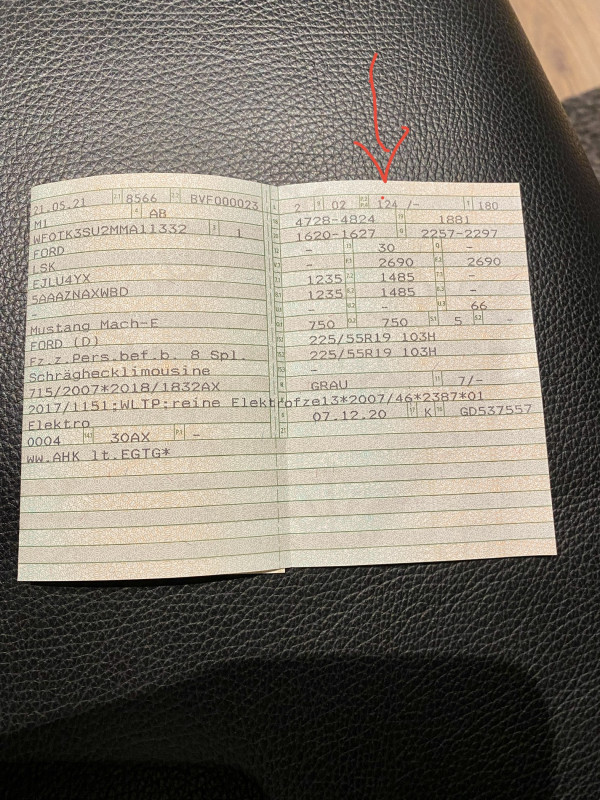 21.05.21 8566 BVF000023
M1 AB
WF0TK3SU2MMA11332 1
FORD
LSK
EJLU4YX
5AAAZNAXWBD
-
Mustang Mach-E
FORD (D)
Fz.z.Pers.bef.b. 8 Spl.
Schräghecklimousine
715/2007*2018/1832AX
2017/1151;WLTP;reine Elektrofz
Elektro
0004 30AX -
ww.AHK lt.EGTG*
2 02 124 /- 180
4728-4824 1881
1620-1627 2257-2297
- 30 -
- 2690 2690
1235 1485 -
1235 1485 -
- - 66
750 750 5 -
225/55R19 103H
225/55R19 103H
-
GRAU 7/-
e13*2007/46*2387*01
07.12.20 K GD537557